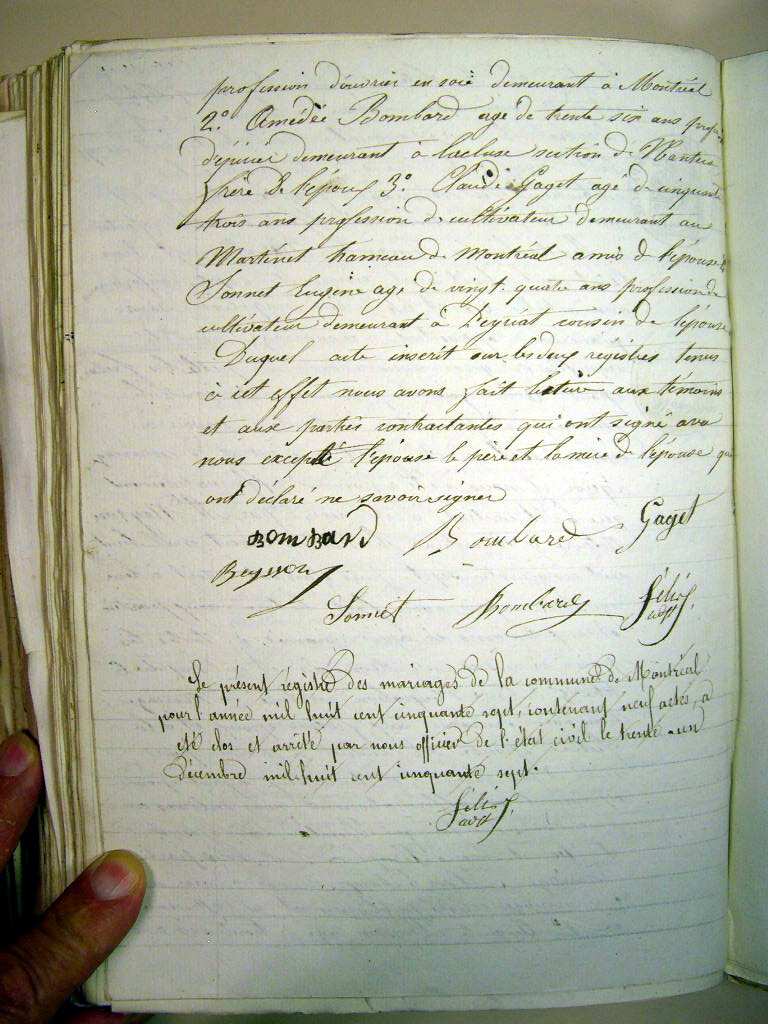 profession d'ouvrier en soie demeurant à Montréal
2.° Amédée Bombard age de trente six ans
demeurant à Lacluse section de Nantua
frère de l'epoux 3.° Claude Gaget agé de cinquante
trois ans profession de cultivateur demeurant au
Martinet hameau de Montréal amis de l'épouse 4°
Sonnet Eugène age de vingt quatre ans profession de
cultivateur demeurant à Peyriat cousin de l'épouse
Duquel acte inscrit sur les deux régistres tenus
à cet effet nous avons fait lecture aux témoins
et aux parties contractantes qui ont signé avec
nous excepté l'épouse le père et la mère de l'épouse qui
ont déclaré ne savoir signer
Bombard Bombard Gaget
Sonnet Bombard
Le présent régistre des mariages de la commune de Montréal
pour l'année mil huit cent cinquante sept, contenant neuf actes, a
été clos et arrêté par nous officier de l'état civil le trente-un
décembre mil huit cent cinquante sept.